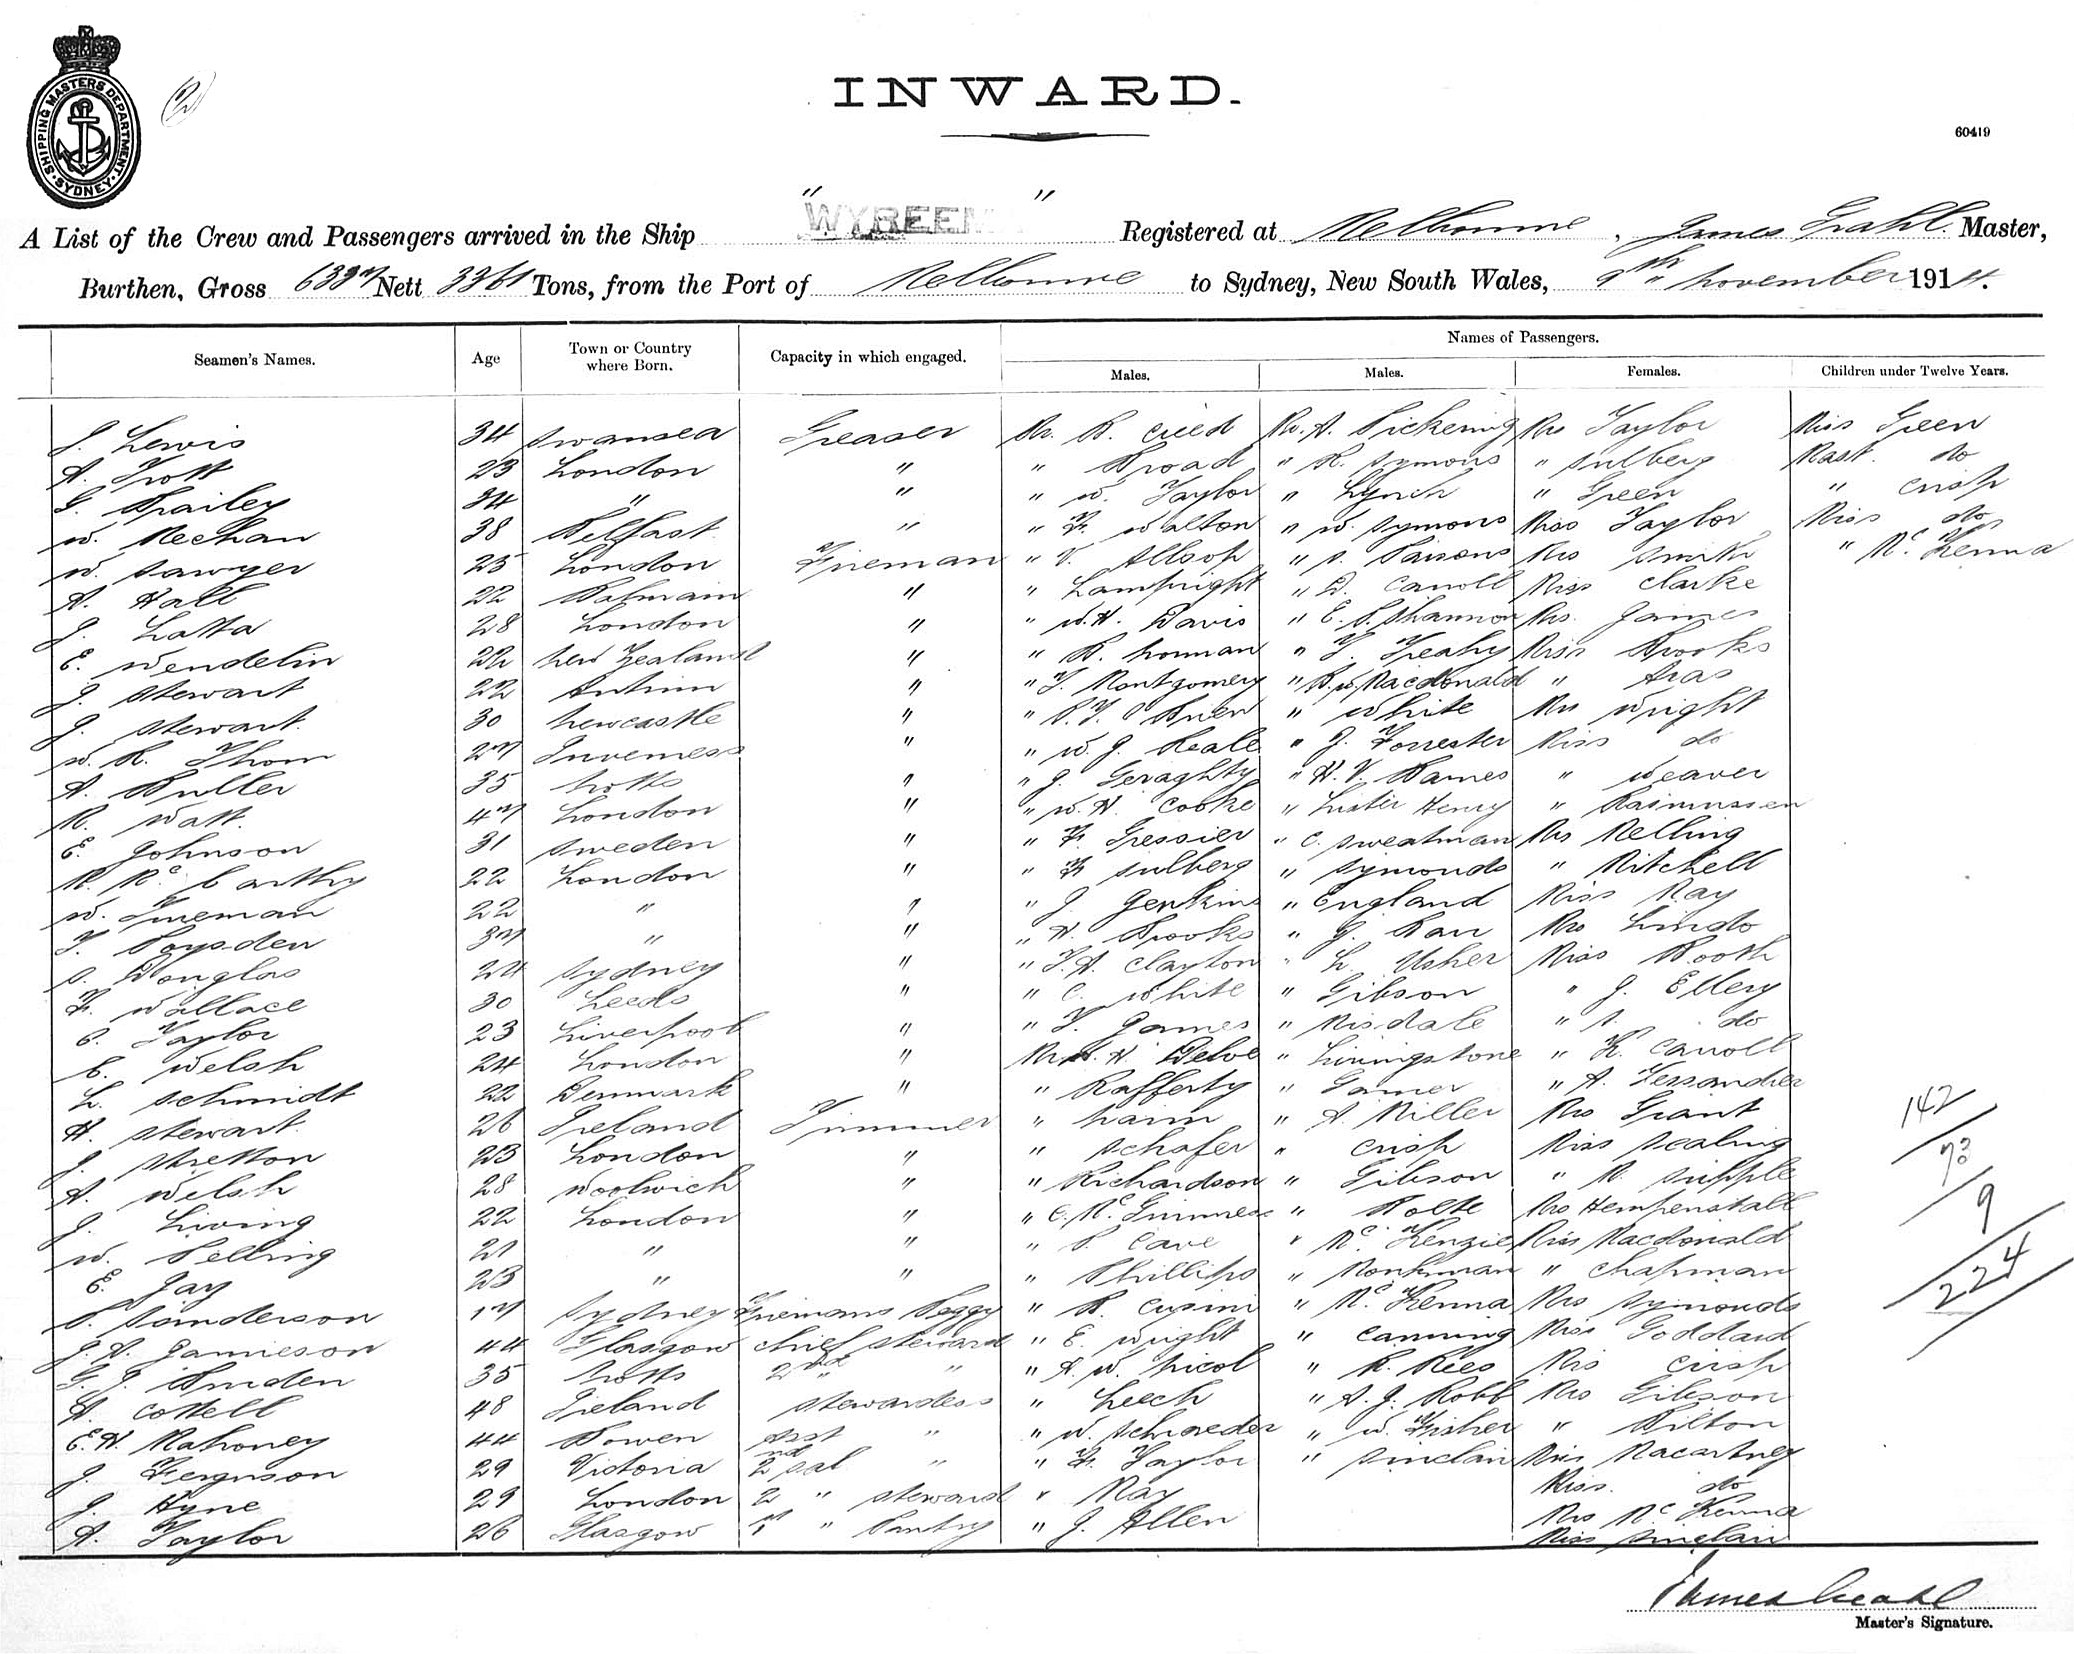 SHIPPING MASTERS DEPARTMENT. SYDNEY.
(2)
INWARD.
60419
A List of the Crew and Passengers arrived in the Ship " WYREEM " Registered at Melbourne, James Grahl. Master,
Burthen, Gross 6337 Nett 3361 Tons, from the Port of Melbourne to Sydney, New South Wales, 9th November 1914.
Seamen's Names. Age Town or Country where Born. Capacity in which engaged. Names of Passengers.
Males. Males. Females. Children under Twelve Years.
J. Lewis 34 Swansea Greaser Mr. R. Creed Mr. A. Pickering Mrs Taylor Miss Green
A. Trott 23 London " " Broad " R. Symons " Sulberg Mast. do
G. 34 " " " W. Taylor " Lynch " Green " Crisp
W. Meehan 38 Belfast " " F. Walton " W. Symons Miss Taylor Miss do
W. Sawyer 25 London Fireman " V. Allsop " S. Parsons Mrs Smith " McKenna
A. Hall 22 Balmain " " Lampright " D. Carroll Miss Clarke
J. Latta 28 London " " W.H. Davis " E. P. Shannon Mrs. James
E. Wendelin 22 New Zealand " " R. Norman " T. Leahy Miss Brooks
J. Stewart 22 Antrim " " T. Montgomery " R.W. Macdonald "
J. Stewart. 30 Newcastle " " P.J. O'Brien " White Mrs Wright
W. R. Thom 27 Inverness " " W. J. Neale " J. Forrester Miss do
A. Buller 35 Notts " " J. Geraghty " H. V. Barnes " Weaver
R. Watt. 47 London " " W. H. Cooke " Lister Henry " Rasmussen
E. Johnson 31 Sweden " " F. Gressier " C. Sweatman Mrs Melling
R. McCarthy 22 London " " F. Sulberg " Symonds " Mitchell
W. 22 " " " J. Jenkins " England Miss May
T. Poysden 37 " " " H. Brooks " J. Mrs Lindo
S. Douglas 24 Sydney " " T.A. Clayton " L. Usher Miss Booth
F. Wallace 30 Leeds " " C. White " Gibson " J. Ellery
C. Taylor 23 Liverpool " " T. James " Misdale " S. do
C. Welsh 24 London " Mr H. Delve " Livingstone " K. Carroll
L. Schmidt 22 Denmark " " Rafferty " Garner " A. Lessandrea
H. Stewart. 26 Ireland Trimmer " Hann " A. Miller Mrs Grant
J. Stretton 23 London " " Schafer " Crisp Miss Scaling
A. Welsh 28 Woolwich " " Richardson " Gibson " M. Supple
J. Living 22 London " " C. McGinness " Nolte Mrs Hempenstall
W. Pelling 21 " " " P. Cave " McKenzie Miss Macdonald
E. Jay 23 " " " Phillips " Monkman " Chapman
P. Sanderson 17 Sydney Firemans Peggy " R. Cusini " McKenna Mrs Symonds
J. S. Jamieson 44 Glasgow Chief Steward " E. Wright " Canning Miss Goddard
G. J. Bruden 35 Notts 2nd " " A. W. Nicol " R. Rees Mrs Crisp
A. Cottell 48 Ireland Stewardess " Leech " A. J. Robb Mrs Gibson
E.H. Mahoney 44 Bowen Asst " " W. Schroeder " W. Fisher " Bilton
J. Ferguson 29 Victoria 2nd Sal " " F. Taylor " Sinclair Mrs Macartney
J. Hyne 29 London 2 " Steward " May Miss. do
A. Taylor 26 Glasgow 1st " Pantry " J. Allen Mrs McKenna
Miss Sinclair
142
73
9
224
James Grahl
Master's Signature.